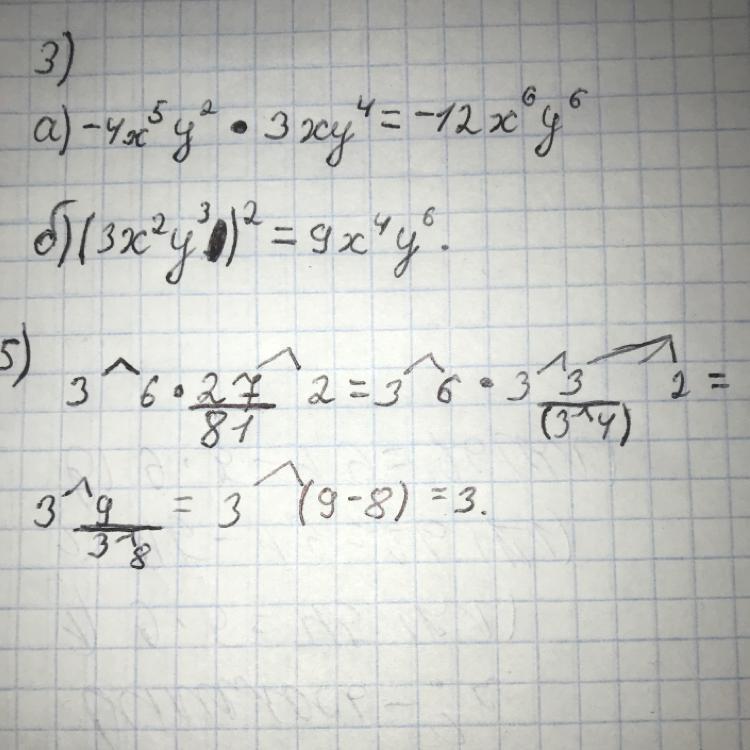 3)
а) -4x⁵y² • 3xy⁴ = -12x⁶y⁶
б) (3x²y³)² = 9x⁴y⁶.
5) 3^6 • 27/81^2 = 3^6 • 3^3/(3^4)^2 =
3^9/3^8 = 3^(9-8) = 3.